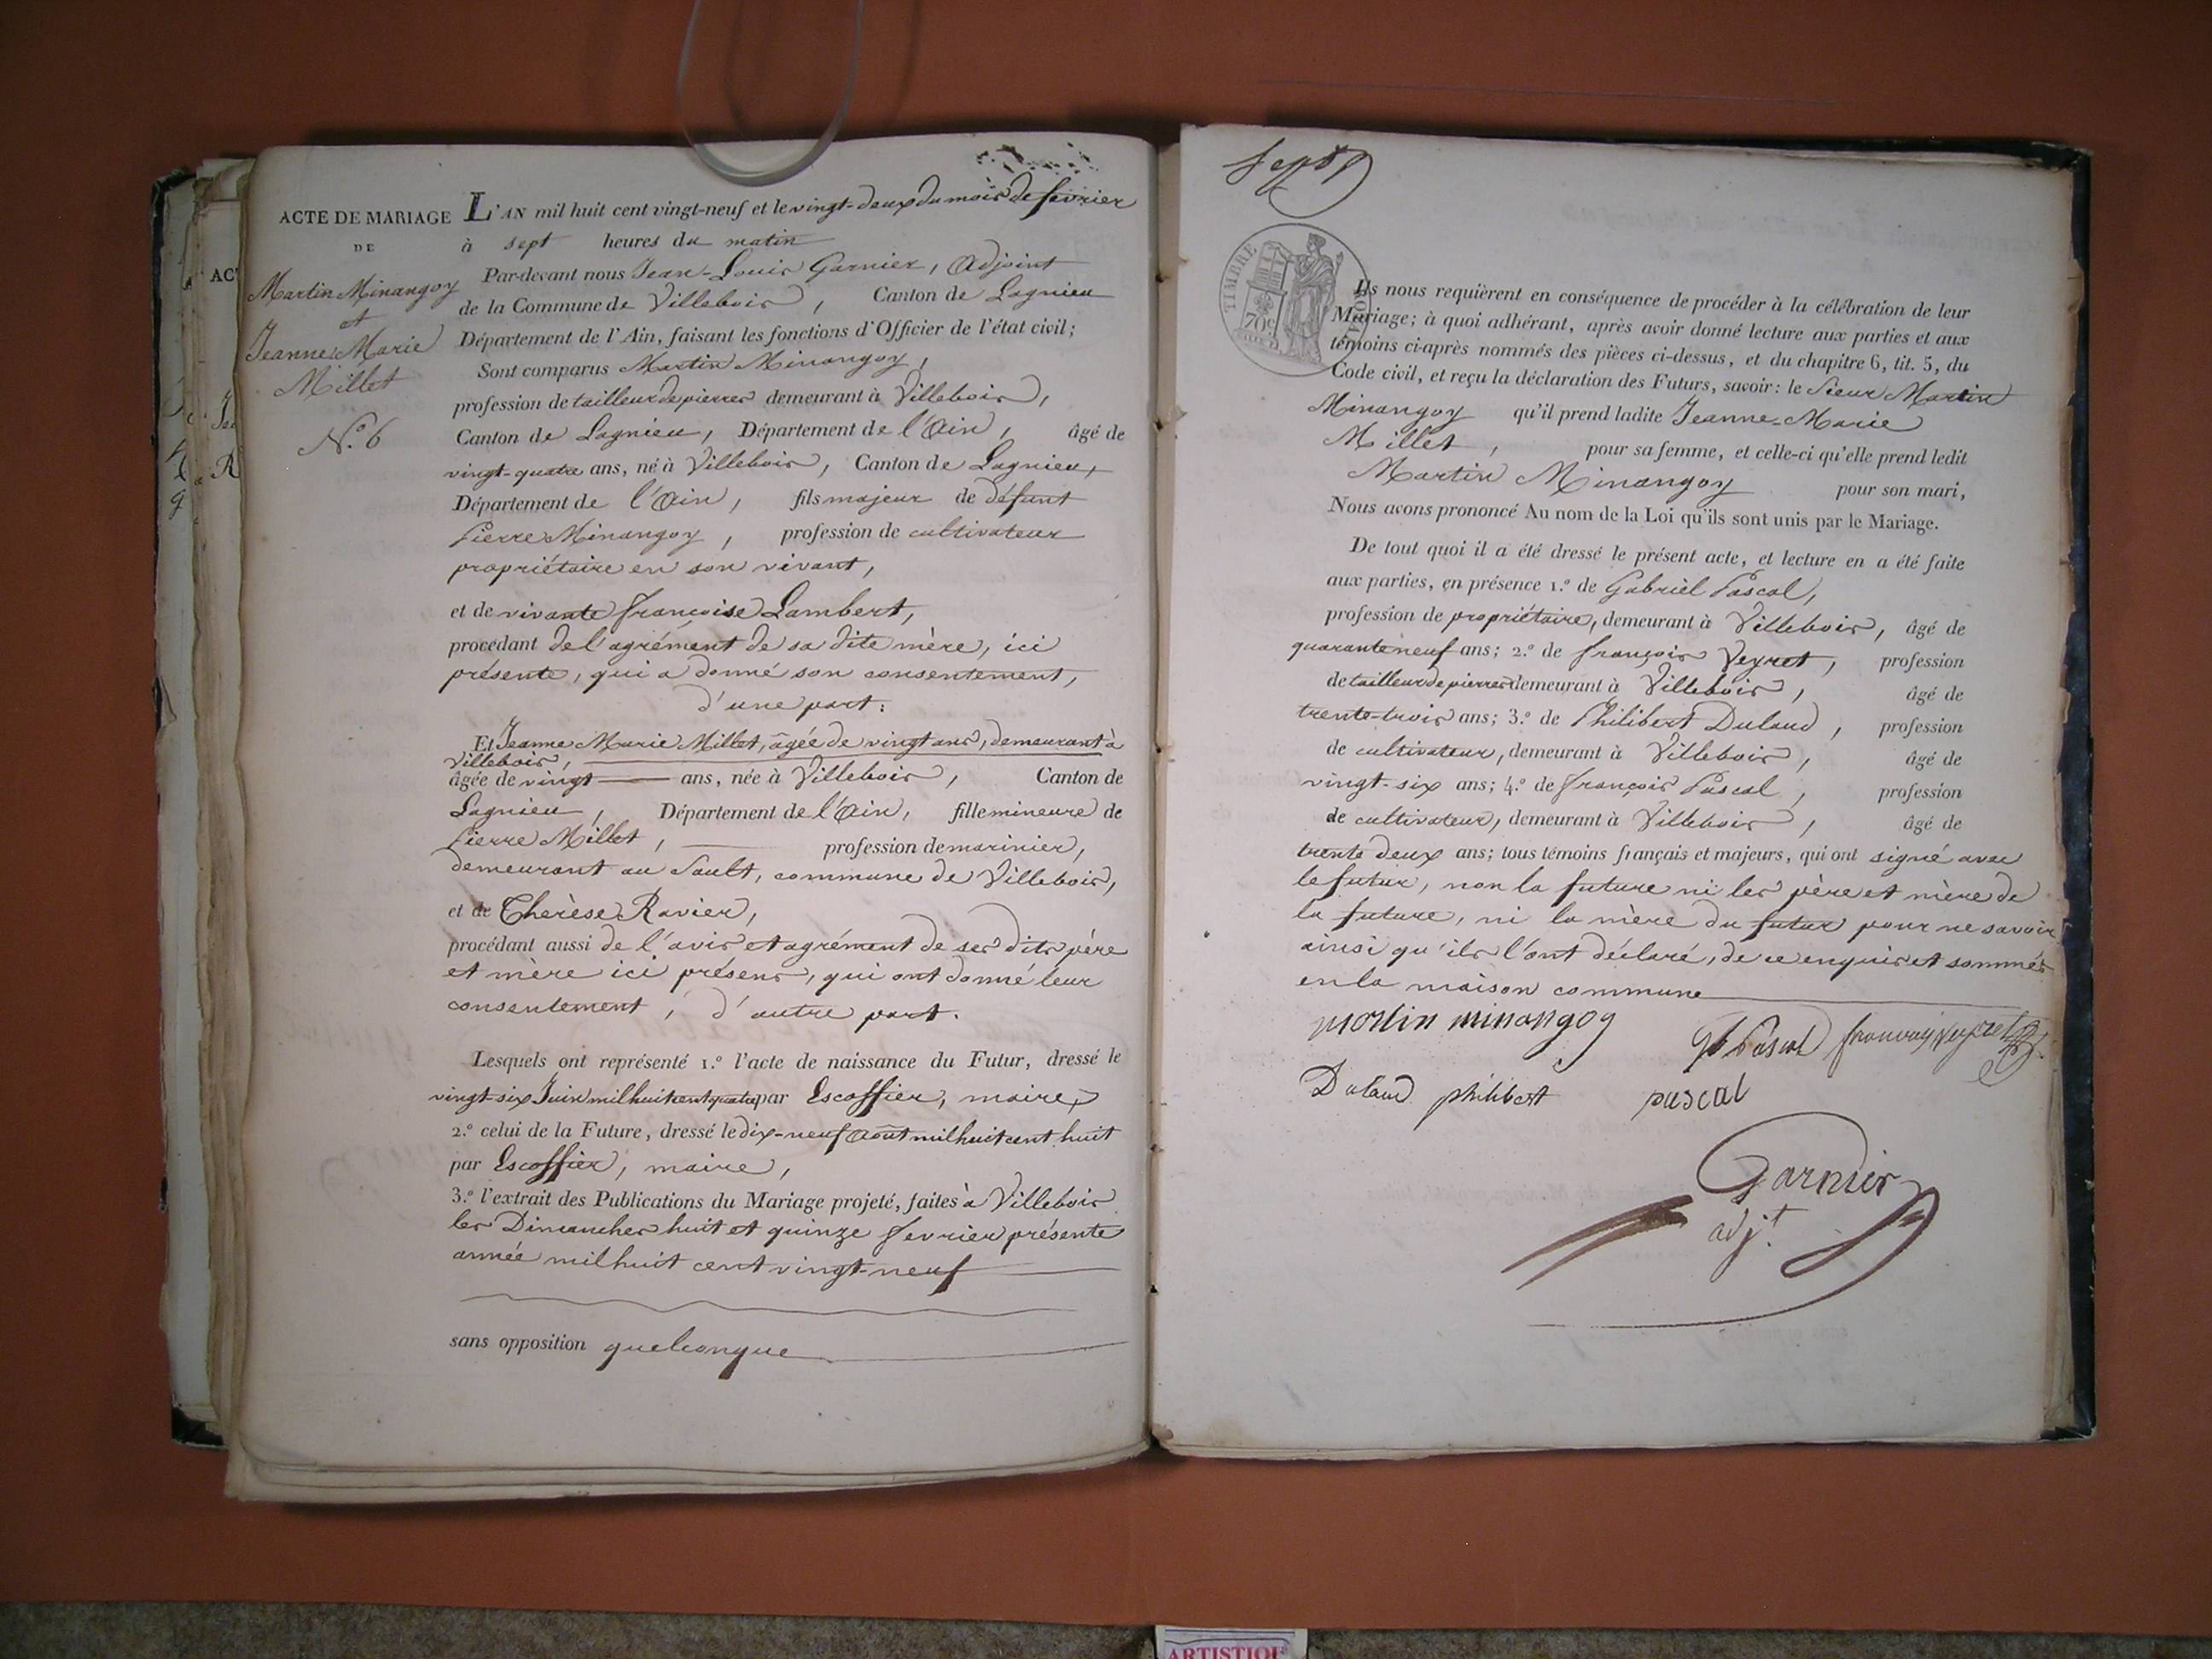 ACTE DE MARIAGE
DE
Martin Minangoy
et
Jeanne-Marie
Millet
N.º 6
L'AN mil huit cent vingt-neuf et le vingt-deux du mois de fevrier
à sept heures du matin
Par-devant nous Jean-Louis Garnier, Adjoint
de la Commune de Villebois, Canton de Lagnieu
Département de l'Ain, faisant les fonctions d'Officier de l'état civil;
Sont comparus Martin Minangoy,
profession de tailleur de pierres demeurant à Villebois,
Canton de Lagnieu, Département de l'Ain, âgé de
vingt-quatre ans, né à Villebois, Canton de Lagnieu,
Département de l'Ain, fils majeur de défunt
Pierre Minangoy, profession de cultivateur
propriétaire en son vivant,
et de vivante françoise Lambert,
procédant de l'agrément de sa dite mère, ici
présente, qui a donné son consentement,
d'une part:
Et Jeanne Marie Millet, âgée de vingt ans, demeurant à
Villebois,
âgée de vingt ans, née à Villebois, Canton de
Lagnieu, Département de l'Ain, fille mineure de
Pierre Millet, profession de marinier,
demeurant au Sault, commune de Villebois,
et de Therèse Ravier,
procédant aussi de l'avis et agrément de ses dits père
et mère ici présens, qui ont donné leur
consentement, d'autre part.
Lesquels ont représenté 1.º l'acte de naissance du Futur, dressé le
vingt-six Juin mil huit cent quatre par Escoffier, maire,
2.º celui de la Future, dressé le dix-neuf août mil huit cent huit
par Escoffier, maire,
3.º l'extrait des Publications du Mariage projeté, faites à Villebois
les Dimanches huit et quinze fevrier présente
année mil huit cent vingt-neuf
sans opposition quelconque
TIMBRE
70c
Ils nous requièrent en conséquence de procéder à la célébration de leur
Mariage; à quoi adhérant, après avoir donné lecture aux parties et aux
témoins ci-après nommés des pièces ci-dessus, et du chapitre 6, tit. 5, du
Code civil, et reçu la déclaration des Futurs, savoir: le Sieur Martin
Minangoy qu'il prend ladite Jeanne-Marie
Millet, pour sa femme, et celle-ci qu'elle prend ledit
Martin Minangoy pour son mari,
Nous avons prononcé Au nom de la Loi qu'ils sont unis par le Mariage.
De tout quoi il a été dressé le présent acte, et lecture en a été faite
aux parties, en présence 1.º de Gabriel Pascal,
profession de propriétaire, demeurant à Villebois, âgé de
quarante neuf ans; 2.º de françois Veyret, profession
de tailleur de pierres demeurant à Villebois, âgé de
trente-trois ans; 3.º de Philibert Dulaud, profession
de cultivateur, demeurant à Villebois, âgé de
vingt-six ans; 4.º de françois Pascal, profession
de cultivateur, demeurant à Villebois, âgé de
trente deux ans; tous témoins français et majeurs, qui ont signé avec
le futur, non la future ni les père et mère de
la future, ni la mère du futur pour ne savoir
ainsi qu'ils l'ont déclaré, de ce enquis et sommés
en la maison commune
martin minangoy
Gb Pascal
françois veyret
Dulaud philibert
pascal
Garnier
adjt
ARTISTIQUE